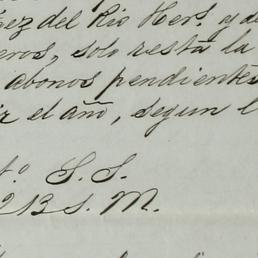 ez del Rio Her.s y d
eros, solo resta la
abonos pendientes
ir el año, segun l
t.o S. S.
2 B S. M.